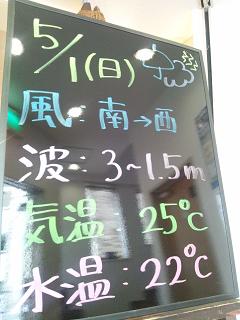 5/1(日)
風:南→西
波:3~1.5m
気温 25℃
水温:22℃